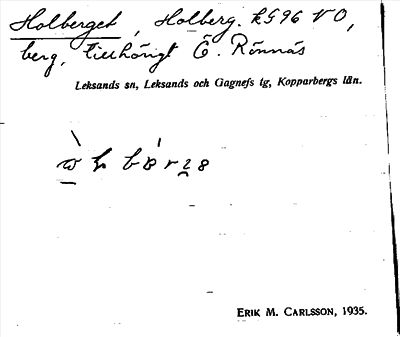 Holberget, Holberg. k596 VO,
berg, tillhörigt Ö. Rönnäs
Leksands sn, Leksands och Gagnefs tg, Kopparbergs län.
ERIK M. CARLSSON, 1935.